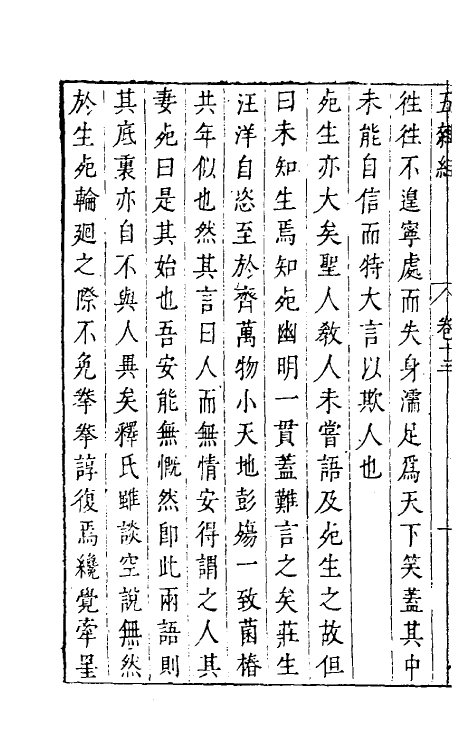 五雜組 卷十三 十
徃徃不遑寧處而失身濡足爲天下笑蓋其中
未能自信而特大言以欺人也
死生亦大矣聖人敎人未嘗語及死生之故但
曰未知生焉知死幽明一貫蓋難言之矣莊生
汪洋自恣至於齊萬物小天地彭殤一致菌椿
共年似也然其言曰人而無情安得謂之人其
妻死曰是其始也吾安能無慨然卽此兩語則
其底裏亦自不與人異矣釋氏雖談空說無然
於生死輪廻之際不免拳拳諄復焉纔覺牽罣